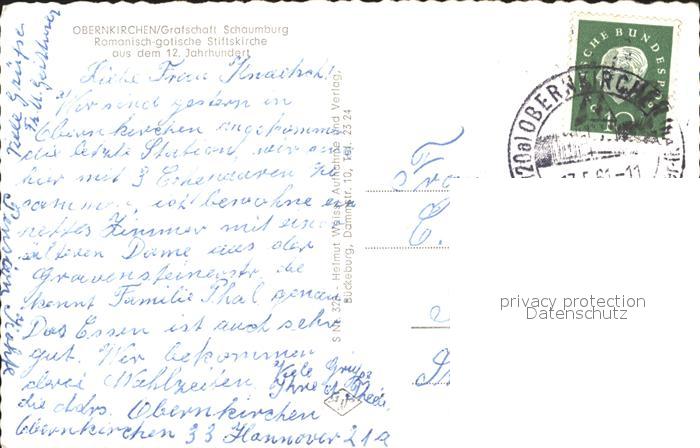 OBERNKIRCHEN/Grafschaft Schaumburg
Romanisch-gotische Stiftskirche
aus dem 12. Jahrhundert
Liebe Frau
Wir sind gestern in
Obernkirchen angekommen
die letzte Station, wir
hier mit 3 zu
sammen, ich bewohne ein
nettes Zimmer mit einer
älteren Dame aus der
Gravensteinerstr. die
kennt Familie Thal genau.
Das Essen ist auch sehr
gut. Wir bekommen
drei Mahlzeiten.
die Adrs. Obernkirchen
Obernkirchen 33 Hannover 21a
Viele Grüße
Ihre
Viele Grüße
Helmut Weiss, Aufnahme und Verlag,
Bückeburg, Dammstr. 10, Tel. 23 24
Fra
E.
DEUTSCHE BUNDESPOST
(20a) OBERNKIRCHEN
privacy protection
Datenschutz